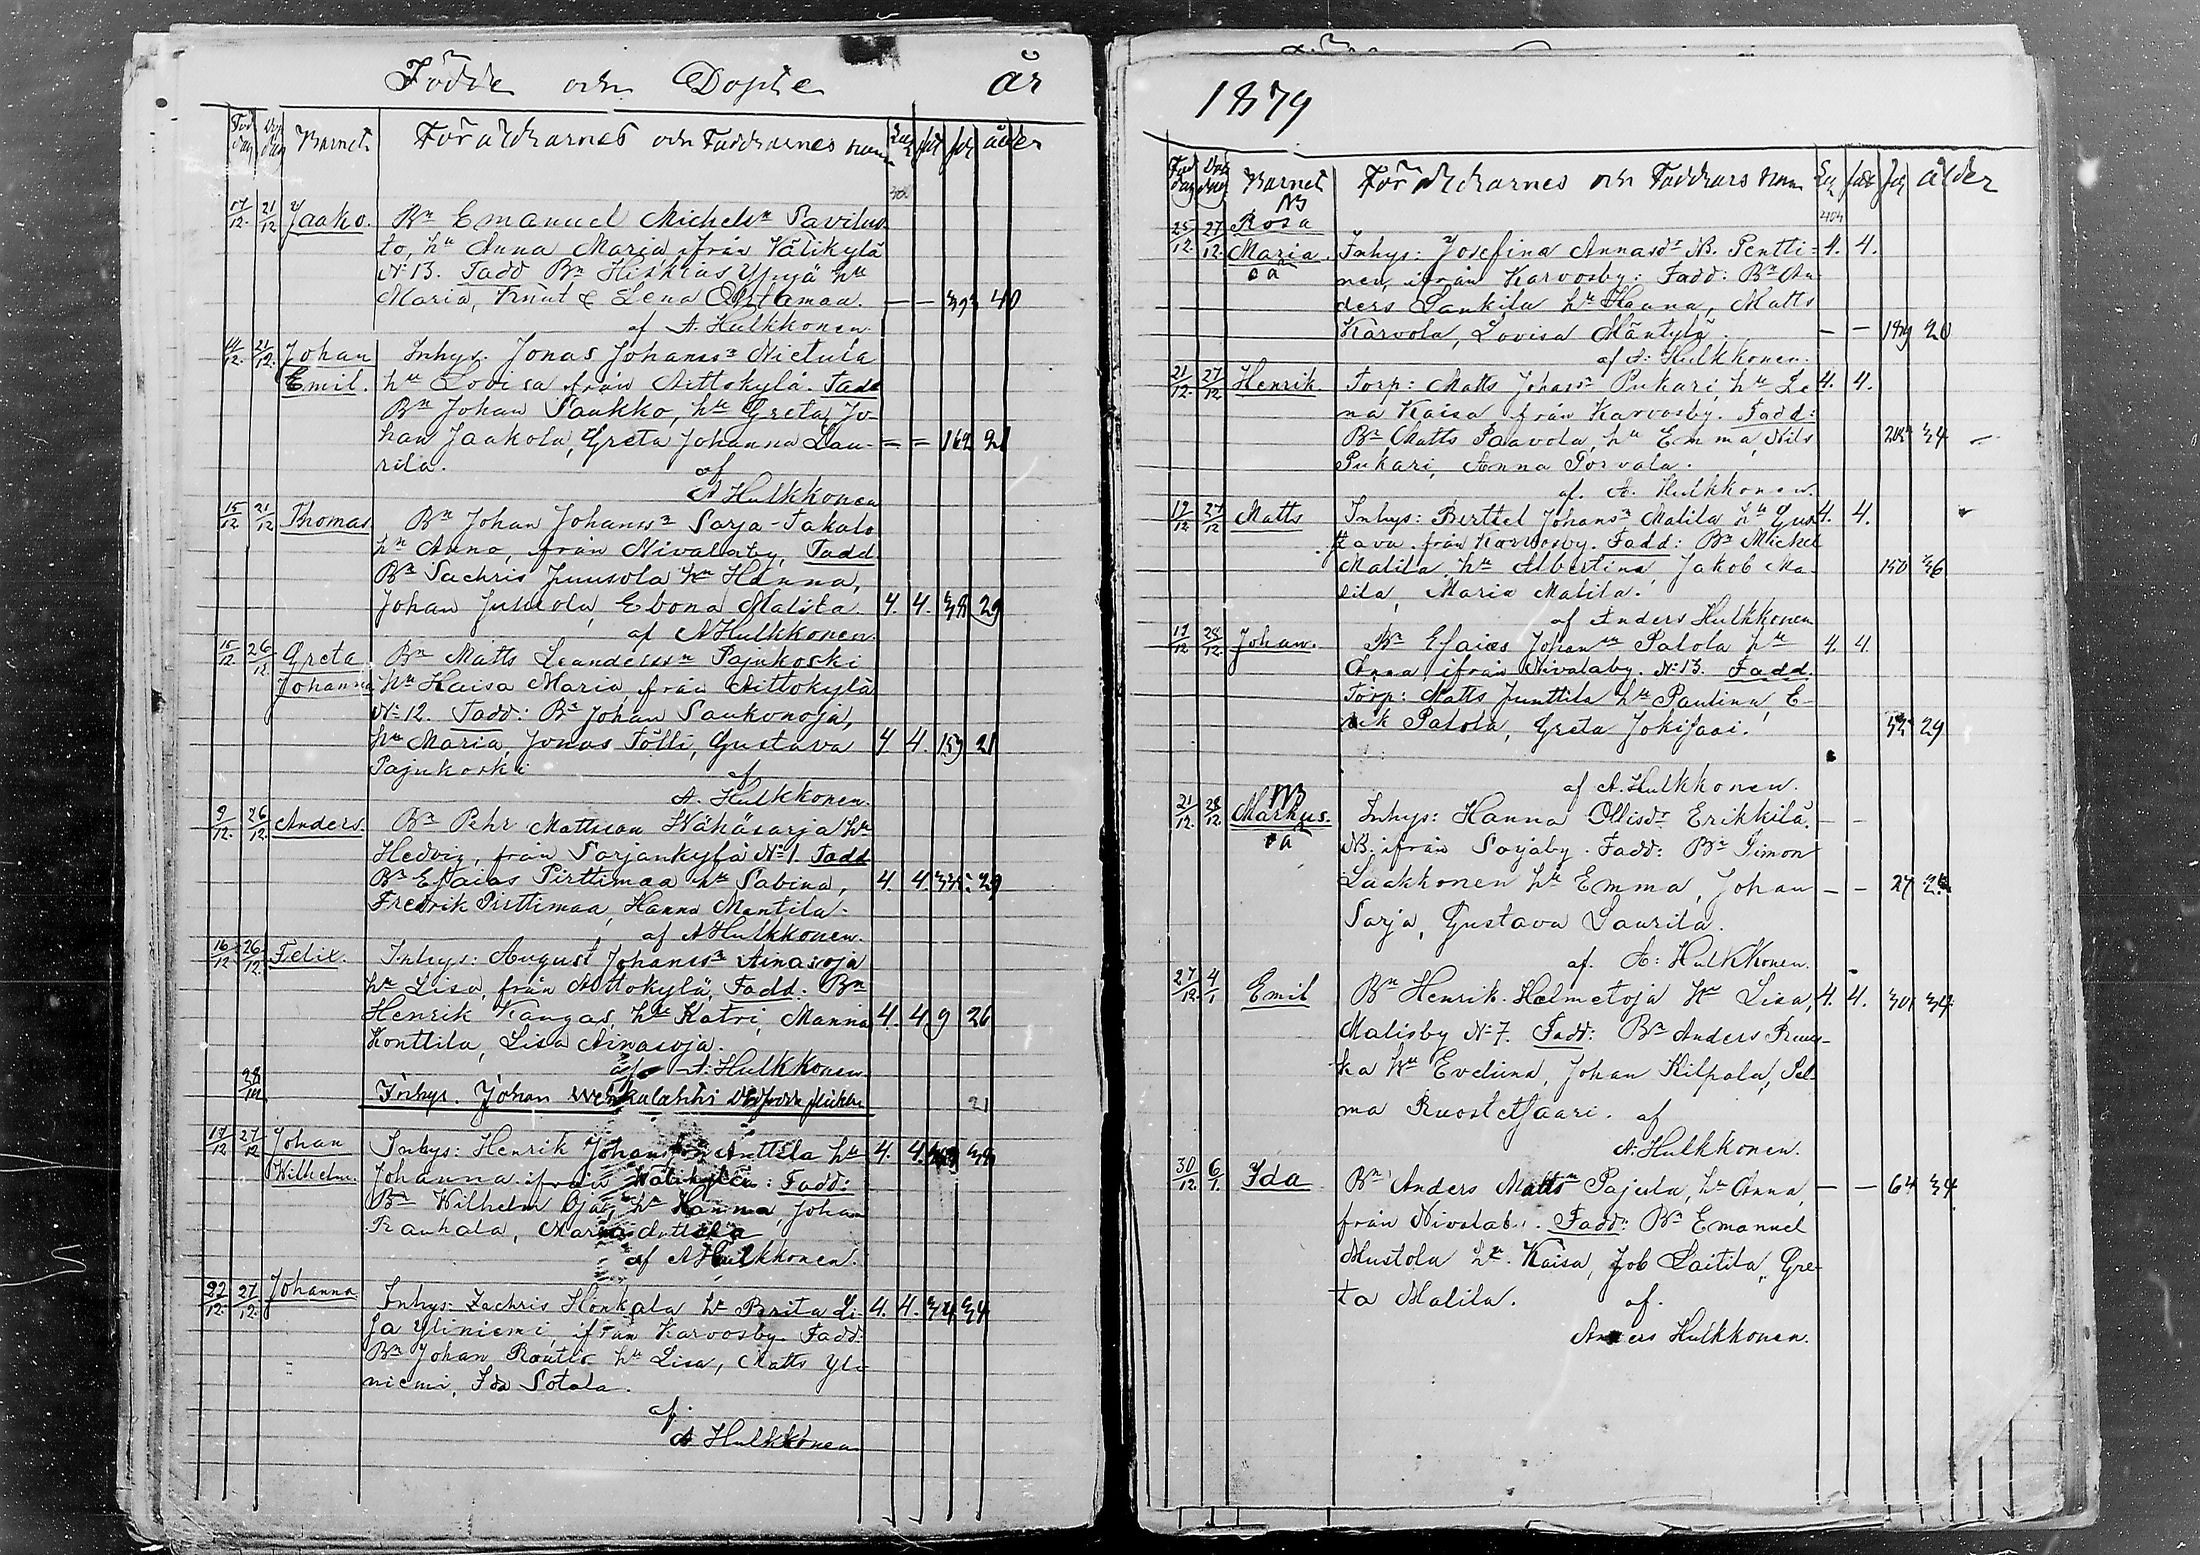 Födde och Döpte år
Barnet Föräldrarnes och Faddrarnes namn ålder
17/12 21/12 Jaako. Bn Emanuel Michelsn Savilus
to, hu Anna Maria, från Välikylä
N:13. Fadd Bn Hiskias Yrjä hu
Maria, Knut & Lena — — 393 40
af A. Hulkkonen.
14/12 21/12 Johan Inhys. Jonas Johanss: Nietula
Emil. hu Lovisa från Aittokylä. Fadd
Bn Johan Saukko, hu Greta, Jo-
han Jaakola, Greta Johanna Lau- = = 162 21
rila. af
A Hulkkonen
15/12 21/12 Thomas Bn Johan Johanss: Sarja-Takalo
hu Anna, från Nivalaby, Fadd
Bn Sachris Juusola hu Hanna,
Johan Juusola, Ebona Malila 4. 4. 38 29
af A Hulkkonen.
15/12 26/12 Greta Bn Matts Leanderssn Pajukoski
Johanna hu Kaisa Maria, från Aittokylä
N:12. Fadd: Bn Johan Saukonoja,
hu Maria, Jonas Tölli, Gustava 4 4. 159 21
Pajukoski af
A. Hulkkonen.
9/12. 26/12. Anders. Bn Pehr Mattsson Wähäsarja hu
Hedvig, från Sarjankylä N:1. Fadd
Bn Esaias Pirttimaa hu Sabina, 4. 4. 335: 29
Fredrik Pirttimaa, Hanna Mantila.
af A Hulkkonen.
16/12 26/12. Felix. Inhys: August Johanss: Ainasoja
hu Lisa, från Aittokylä, Fadd. Bn
Henrik Kangas, hu Katri, Manna 4. 4. 9 26
Konttila, Lisa Ainasoja.
af A: Hulkkonen
28/ Inhys. Johan flicka 21
17/12 27/12 Johan Inhys: Henrik Johansson Anttila hu 4. 4. 38
Wilhelm. Johanna ifrån Välikylä: Fadd:
Bn Wilhelm Oja, hu Hanna, Johan
Rauhala, Maria Anttila
af A Hulkkonen.
22/12. 27/12. Johanna Inhys: Zachris Honkala hu Brita Li- 4. 4. 324 34
sa Yliniemi, ifrån Karvosby. Fadd:
Bn Johan Rautio hu Lisa, Matts Yli-
niemi, Ida Sotala.
af.
A Hulkkonen
1879
Barnet Föräldrarnes och Faddrars namn ålder
NB
25/12. 27/12. Rosa 404
Maria. Inhys: Josefina Annasdr NB. Pentti- 4. 4.
oä nen, ifrån Karvosby: Fadd: Bn An-
ders Sankila hu Hanna, Matts
Karvola, Lovisa Mäntylä. — — 189 20
af A: Hulkkonen.
21/12. 27/12 Henrik. Torp: Matts Johanssn Pukari, hu Le 4. 4.
na Kaisa från Karvosby. Fadd:
Bn Matts Paavola, hu Emma, Nils 34
Pukari, Anna Porvala.
af. A. Hulkkonen.
19/12 27/12 Matts Inhys: Berttel Johans: Malila hu Gus 4. 4.
tava från Karvosby. Fadd: Bn Michel
Malila, hu Albertina, Jakob Ma- 150 36
lila, Maria Malila.
af Anders Hulkkonen
19/12 28/12. Johan. Bn Esaias Johanssn Palola hu 4. 4.
Anna ifrån Nivalaby. N:13. Fadd.
Torp: Matts Junttila hu Paulina, E-
rik Palola, Greta Jokisaari. 29
af A. Hulkkonen.
NB
21/12. 28/12 Markus. Inhys: Hanna Ollisdr Erikkilä. — —
oä NB. ifrån Sarjaby. Fadd: Bn Simon
Laakkonen hu Emma, Johan — — 27
Sarja, Gustava Laurila.
af. A: Hulkkonen.
27/12. 4/1 Emil Bn Henrik Helmetoja hu Lisa, 4. 4. 301 34
Malisby N:7. Fadd: Bn Anders Ruus-
ka hu Evelina, Johan Kilpala, Sel-
ma Ruostetsaari. af
A. Hulkkonen.
30/12. 6/1. Ida Bn Anders Mattsn Pajula, hu Anna, — — 64 34
från Nivalab. Fadd: Bn Emanuel
Mustola hu Kaisa, Job Laitila, Gre-
ta Malila. af.
Anders Hulkkonen.